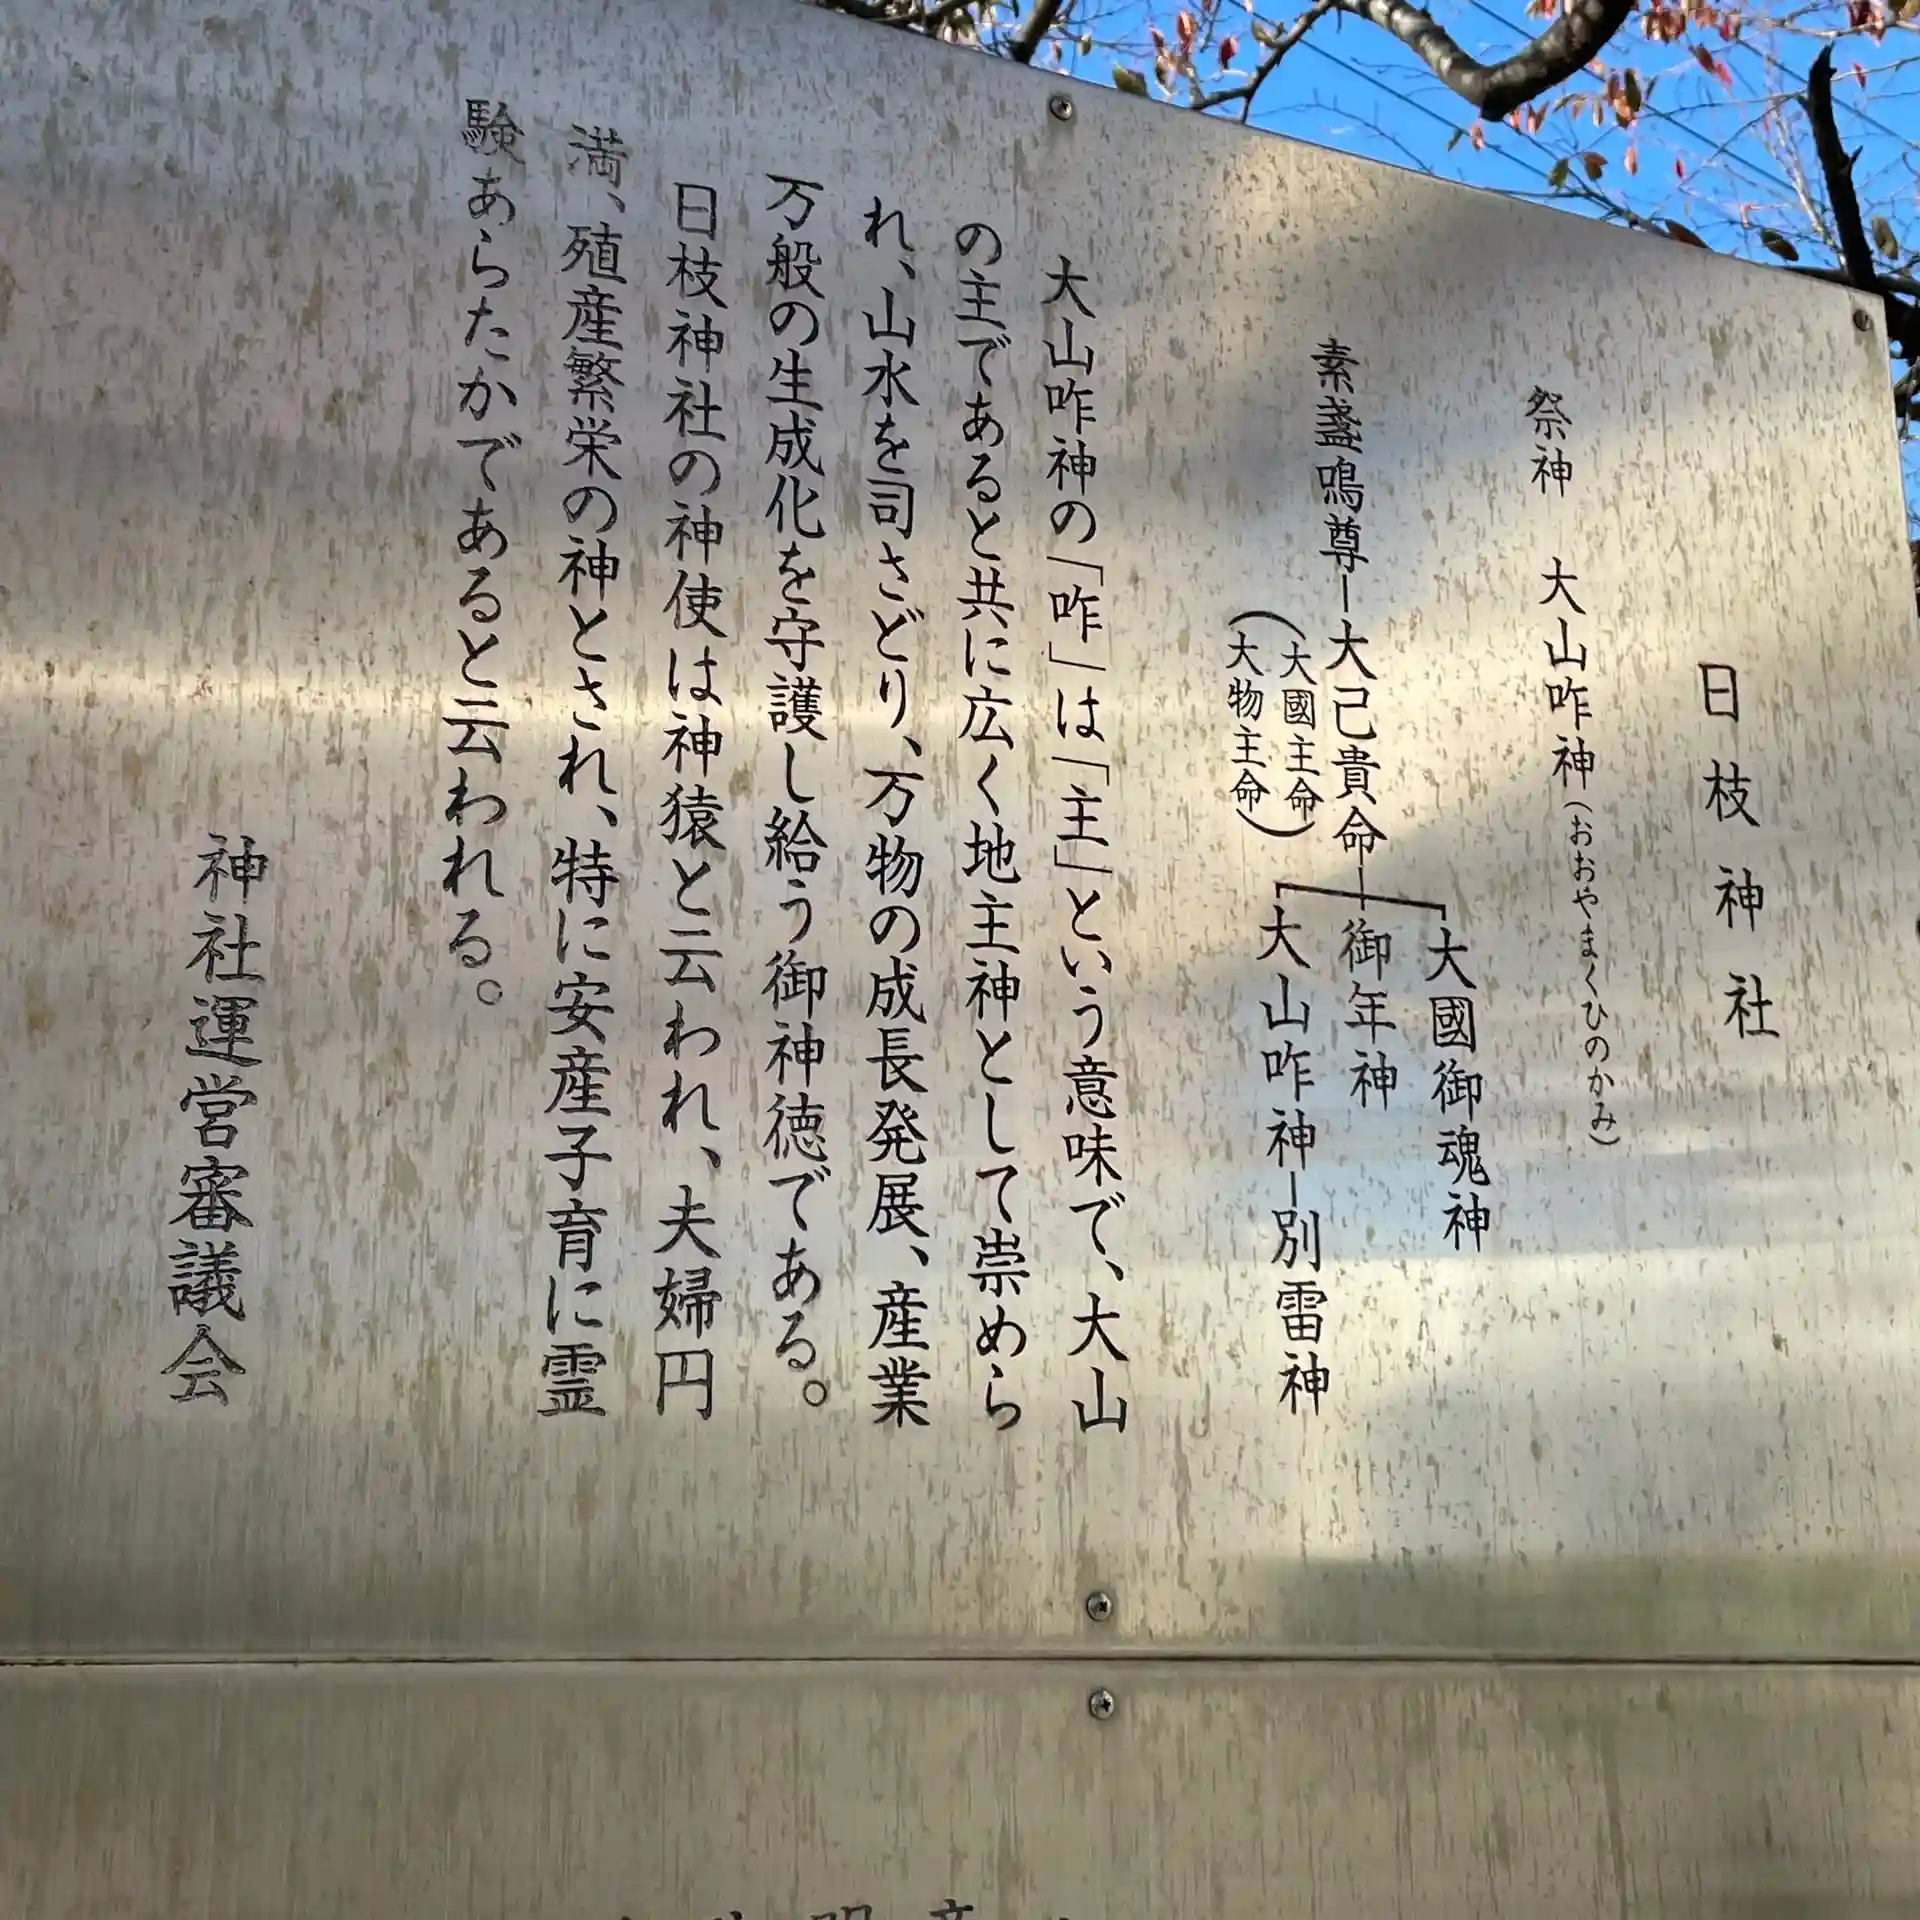 日枝神社
祭神 大山咋神（おおやまくひのかみ）
素盞鳴尊ー大己貴命
（大國主命）
（大物主命）
大國御魂神
御年神
大山咋神ー別雷神
大山咋神の「咋」は「主」という意味で、大山
の主であると共に広く地主神として崇めら
れ、山水を司さどり、万物の成長発展、産業
万般の生成化を守護し給う御神徳である。
日枝神社の神使は神猿と云われ、夫婦円
満、殖産繁栄の神とされ、特に安産子育に霊
験あらたかであると云われる。
神社運営審議会